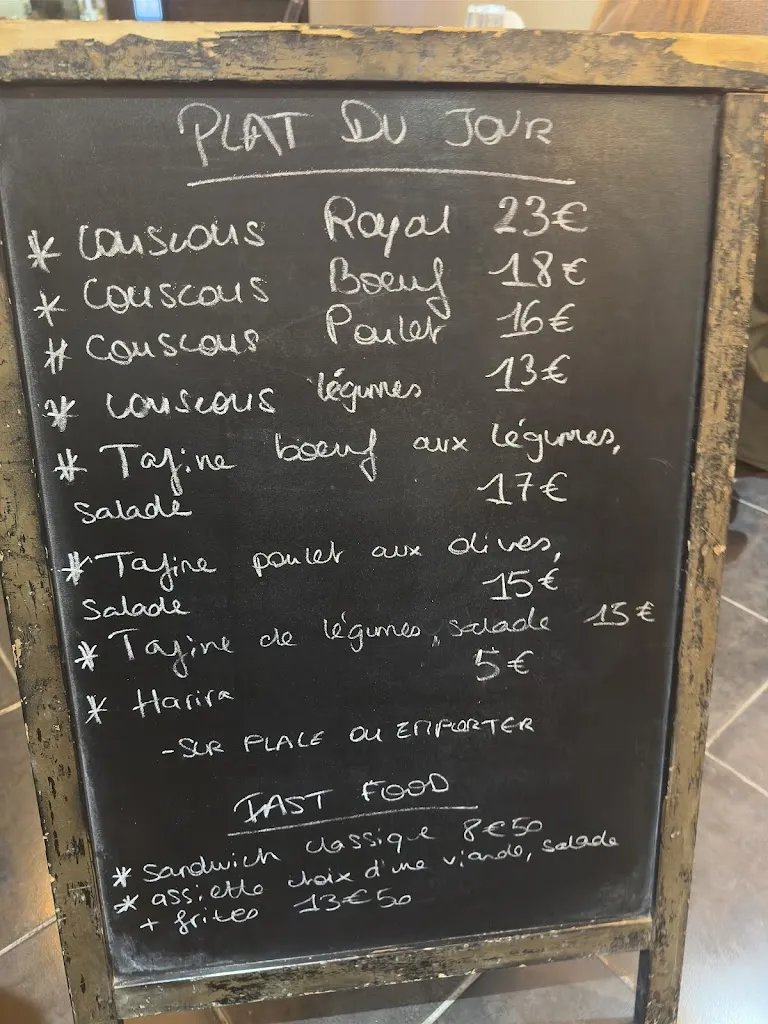 PLAT DU JOUR
* Couscous Royal 23€
* Couscous Boeuf 18€
* Couscous Poulet 16€
* Couscous légumes 13€
* Tajine boeuf aux légumes,
salade 17€
* Tajine poulet aux olives,
salade 15€
* Tajine de légumes, salade 13€
* Harira 5€
-SUR PLACE OU EMPORTER
FAST FOOD
* Sandwich classique 8€50
* assiette choix d'une viande, salade
+ frites 13€50